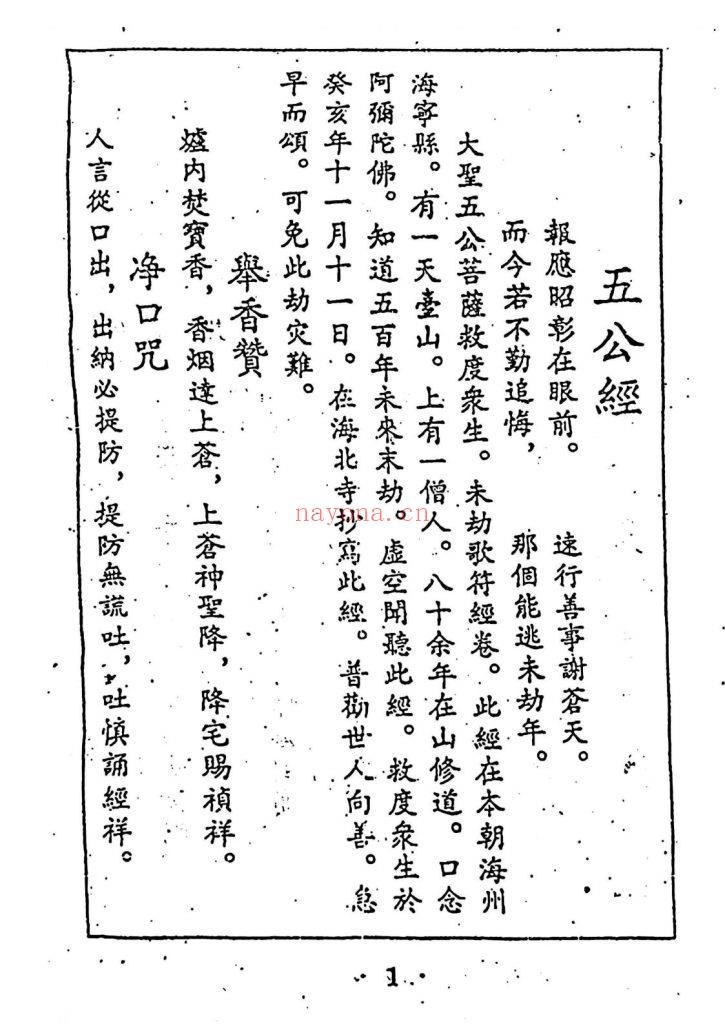 五公經
報應昭彰在眼前。 速行善事謝蒼天。
而今若不勤追悔， 那個能逃未劫年。
大聖五公菩薩救度衆生。未劫歌符經卷。此經在本朝海州
海寧縣。有一天臺山。上有一僧人。八十余年在山修道。口念
阿彌陀佛。知道五百年未來末劫。虛空聞聽此經。救度衆生於
癸亥年十一月十一日。在海北寺抄寫此經。普勸世人向善。急
早而頌。可免此劫灾難。
舉香贊
爐内焚寶香，香烟達上蒼，上蒼神聖降，降宅賜禎祥。
净口咒
人言從口出，出納必提防，提防無謊吐，吐慎誦經祥。
nayona.cn
1